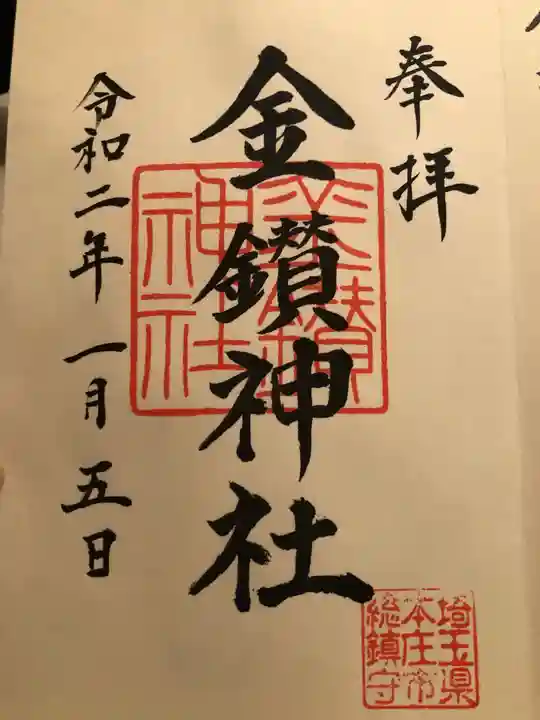 奉拝
金鑚神社
金鑚神社
令和二年一月五日
埼玉県
本庄市
総鎮守